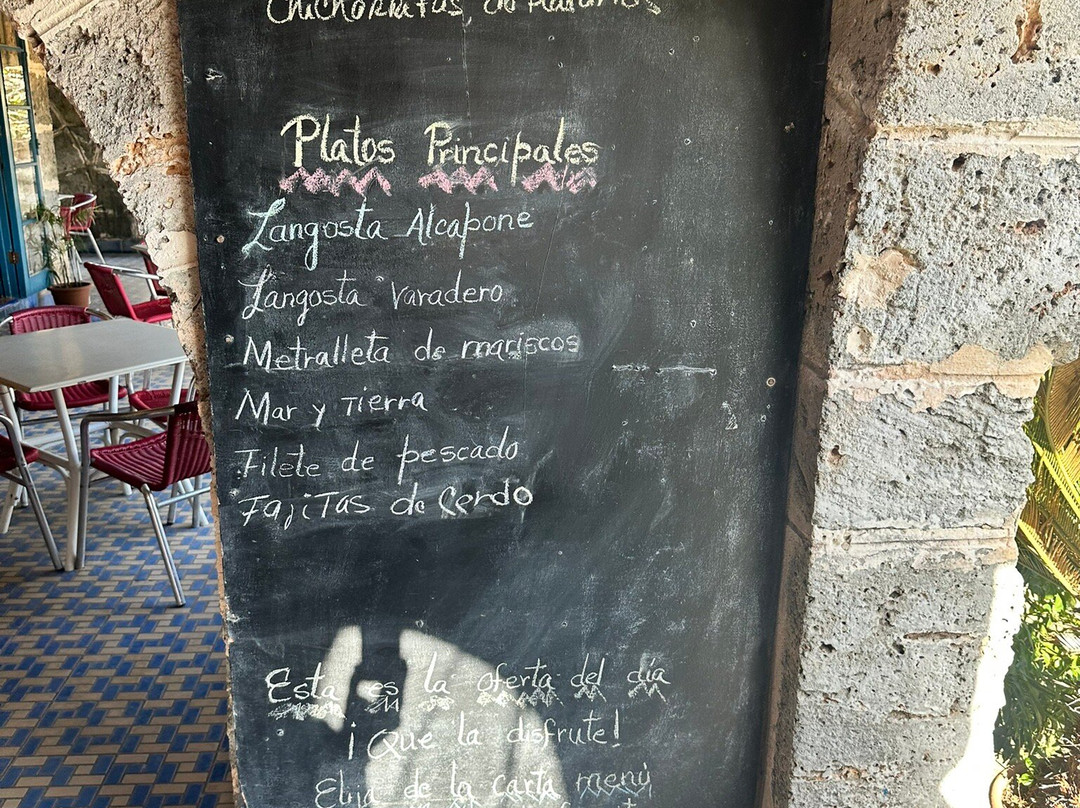 Chicharritas, de plátanos
Platos Principales
Langosta Alcapone
Langosta Varadero
Metralleta de mariscos
Mar y Tierra
Filete de pescado
Fajitas de Cerdo
Esta es la oferta del día
¡Que la disfrute!
Elija de la carta menú